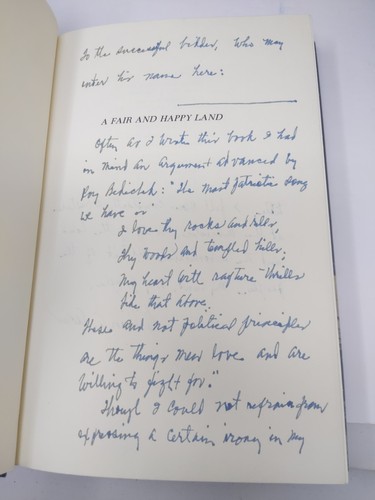 To the successful bidder, who may
enter his name here:
A FAIR AND HAPPY LAND
Often as I wrote this book I had
in mind an argument advanced by
Roy Bedichek: "The most patriotic song
we have is
I love thy rocks and rills,
Thy woods and templed hills;
My heart with rapture thrills
Like that above.
These and not political principles
are the things men love and are
willing to fight for."
Though I could not refrain from
expressing a certain irony in my